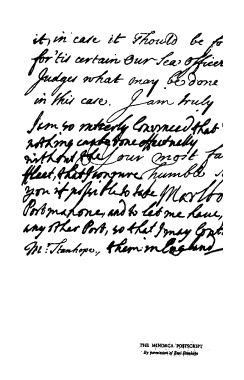 it, in case it should be fo
for 'tis certain our Sea officer
Judges what may be done
in this case. I am truly
I am so entirely convinced that
nothing can be done effectually
without the your most fa
fleet, that I conjure humble s
you if possible to take Marlbo
Port mahone, and to let me have,
any other Port, so that I may
Mr. Stanhope, them in England
THE MINORCA POSTSCRIPT
By permission of Earl Stanhope